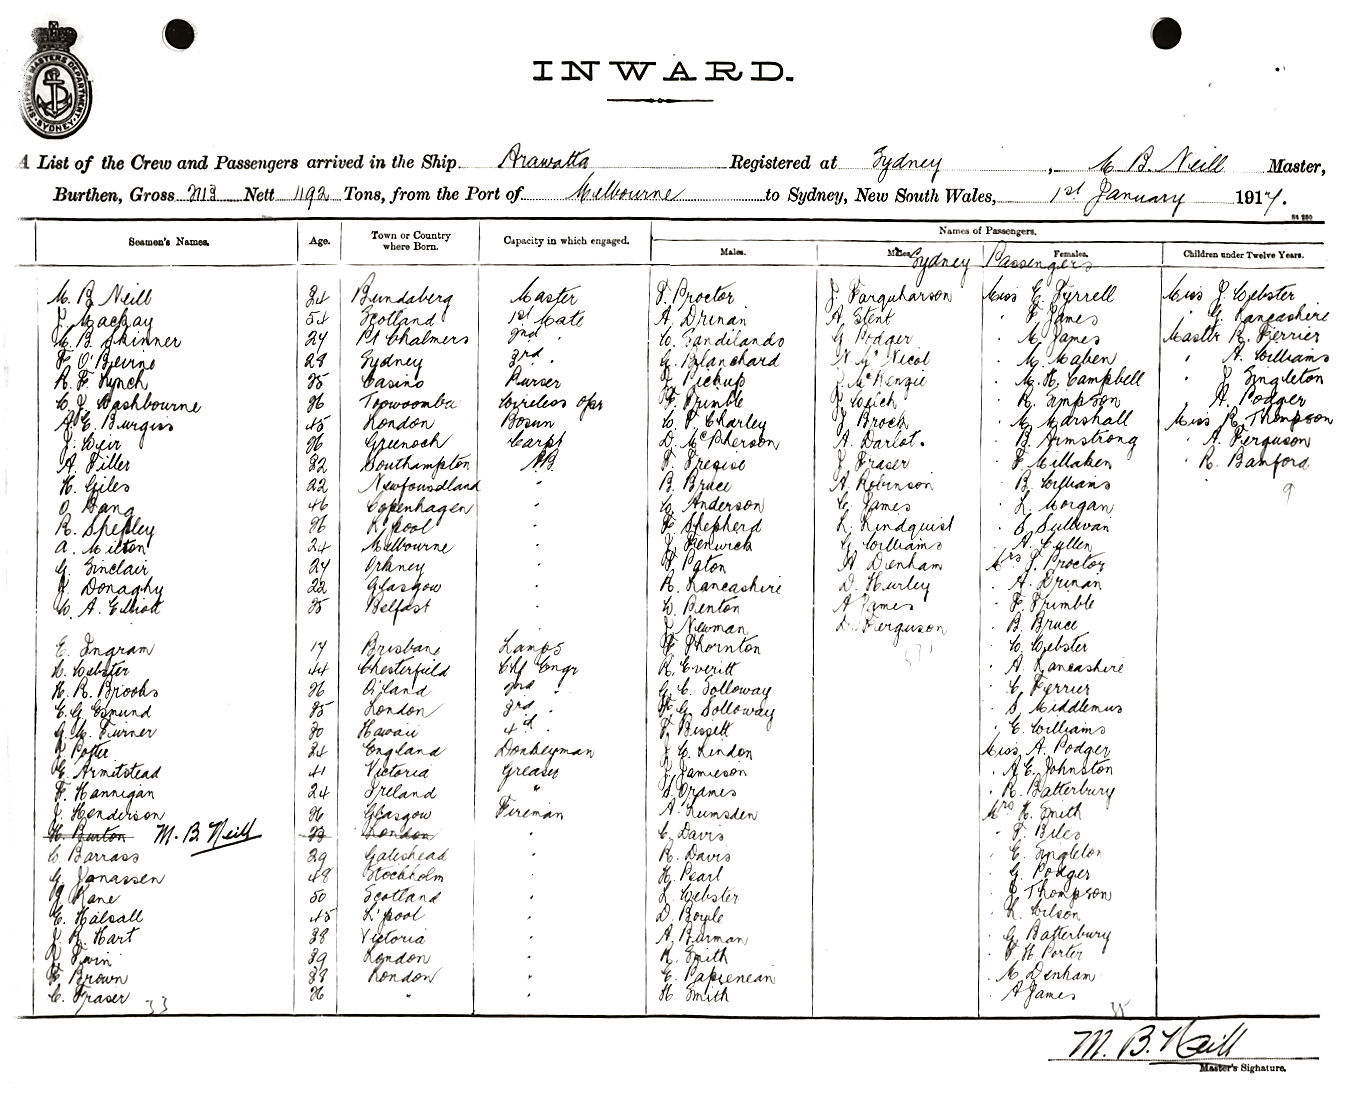 SHIPPING MASTERS DEPARTMENT SYDNEY
INWARD.
A List of the Crew and Passengers arrived in the Ship Arawatta Registered at Sydney, M. B. Neill Master,
Burthen, Gross 2113 Nett 1192 Tons, from the Port of Melbourne to Sydney, New South Wales, 1st January 1917.
Names of Passengers.
Seamen's Names. Age. Town or Country where Born. Capacity in which engaged. Males. Males. Females. Children under Twelve Years.
Sydney Passengers
M. B. Neill 34 Bundaberg Master F. Proctor J. Farquharson Miss E. Tyrrell Miss J. Webster
J. Mackay 54 Scotland 1st Mate A. Drinan A. Stent " F. James " G. Lancashire
M. B. Skinner 24 Pt Chalmers 2nd " W. Sandilands G. Podger " M. James Mastr R. Ferrier
F. O'Beirne 28 Sydney 3rd " G. Blanchard N. McNicol " M. Maben " A. Williams
R. F. Lynch 25 Casino Purser Pickup J. McKenzie " M. K. Campbell " J. Singleton
C. J. Washbourne 26 Toowoomba Wireless Opr F. Trimble J. Welch " R. Simpson " A. Podger
A. E. Burgiss 45 London Bosun C. F. Charley J. Brock " M. Marshall Miss R. Thompson
J. Weir 36 Greenock Carpt D. McPherson A. Darlot " B. Armstrong " A. Ferguson
A. Tiller 32 Southampton AB F. J. Fraser " F. Millaken " R. Bamford
H. Giles 22 Newfoundland " B. Bruce A. Robinson " B. Williams 9
O. Bang 46 Copenhagen " C. Anderson C. James " L. Morgan
R. Shepley 26 L'pool " F. Shepherd L. Lindquist " E. Sullivan
A. Milton 24 Melbourne " J. Fenwick G. Williams " A. Cullen
G. Sinclair 24 Orkney " F. Paton A. Denham Mrs F. Proctor
J. Donaghy 22 Glasgow " R. Lancashire D. Hurley " A. Drinan
W. A. Elliott 25 Belfast " W. Benton A. James " F. Trimble
J. Newman D. Ferguson " B. Bruce
E. Ingram 17 Brisbane Lamps F. Thornton " W. Webster
W. Webster 44 Chesterfield Chf Engr R. Everitt " A. Lancashire
H. R. Brooks 36 2nd " G. C. Solloway " C. Ferrier
E. G. Esmund 25 London 3rd " G. Solloway " S. Middlemus
G. M. Turner 30 Hawaii 4th " F. Bissett " E. Williams
Potter 34 England Donkeyman C. Lindon Miss A. Podger
E. Armitstead 41 Victoria Greaser J. Jamieson " A. E. Johnston
F. Hannigan 24 Ireland " " R. Batterbury
J. Henderson 26 Glasgow Fireman A. Lumsden Mrs H. Smith
H. Burton M. B. Neill 33 London " C. Davis " F. Biles
C. Barrass 29 Gateshead " R. Davis " E. Singleton
G. Janassen 48 Stockholm " H. Pearl " G. Podger
Kane 50 Scotland " L. Webster " J. Thompson
E. Halsall 45 L'pool " D. Boyle " L. Wilson
J. R. Hart 38 Victoria " A. Burman " G. Batterbury
39 London " R. Smith " F. H. Porter
F. Brown 38 London " E. " M. Denham
C. Fraser 33 26 " " H. Smith " A. James
M. B. Neill
Master's Signature.